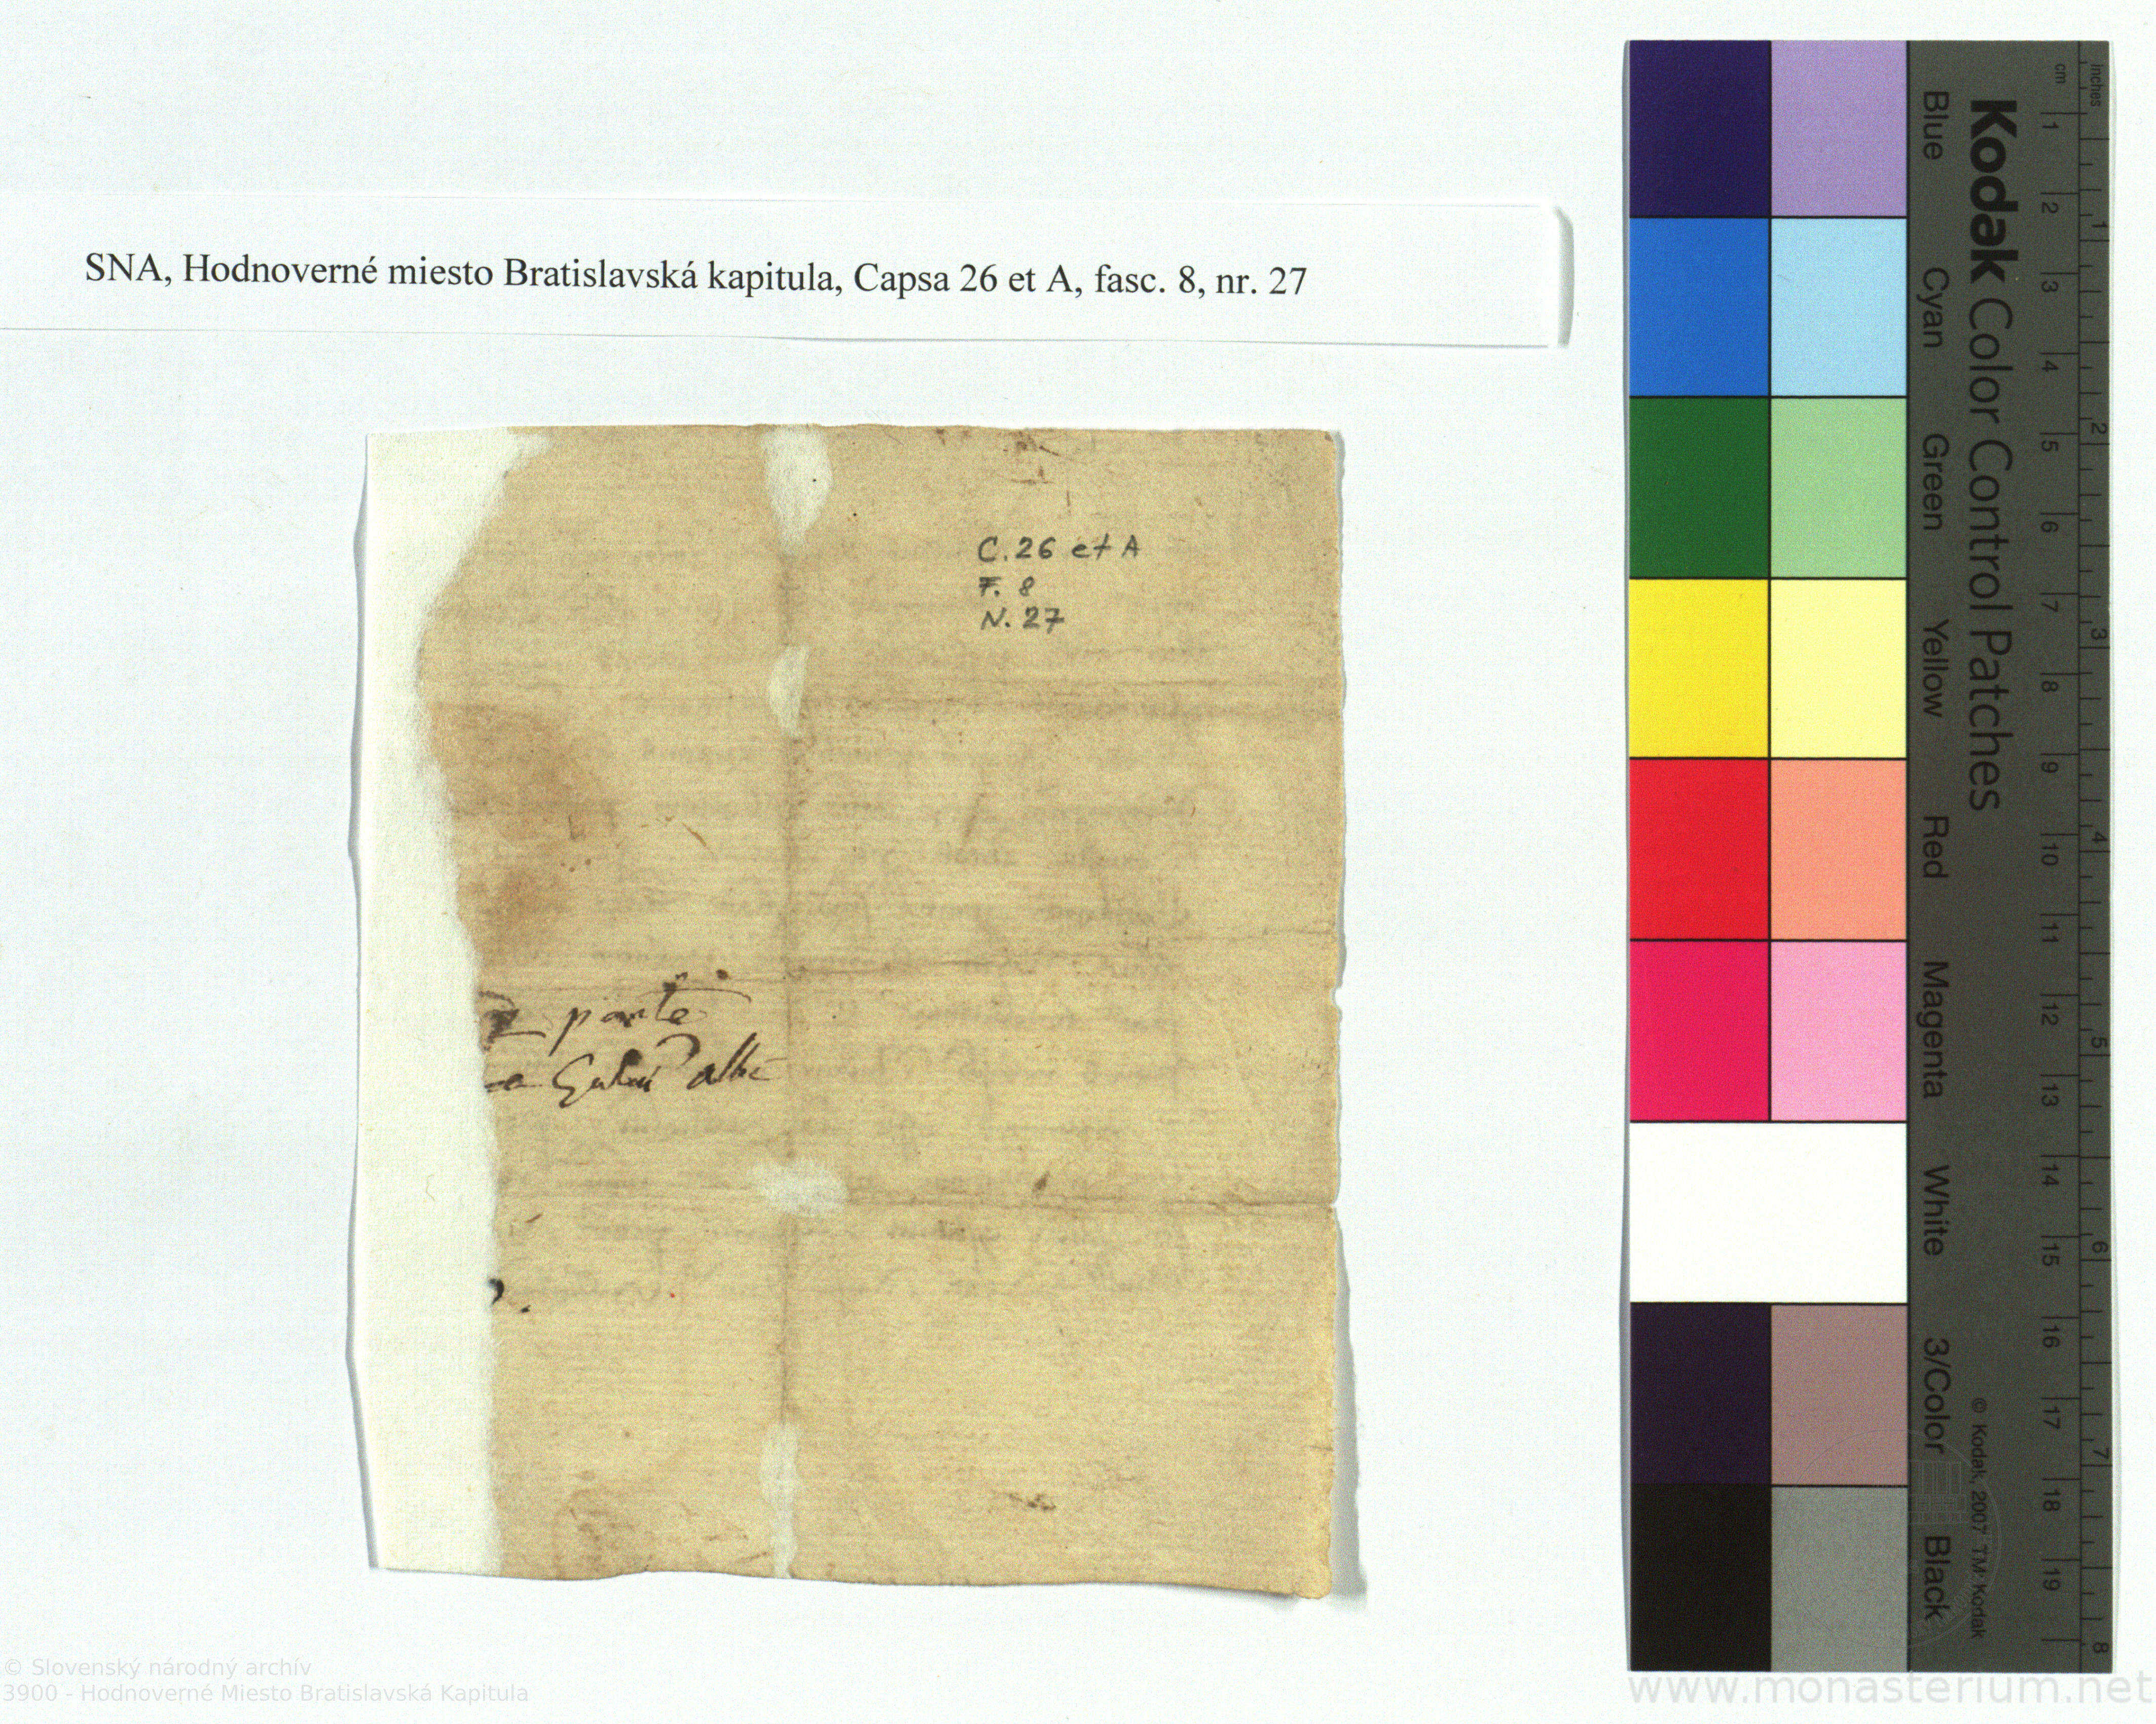 SNA, Hodnoverné miesto Bratislavská kapitula, Capsa 26 et A, fasc. 8, nr. 27
C. 26 et A
F. 8
N. 27
parte
albe
Kodak Color Control Patches
Blue Cyan Green Yellow Red Magenta White 3/Color Black
cm 1 2 3 4 5 6 7 8 9 10 11 12 13 14 15 16 17 18 19
inches 1 2 3 4 5 6 7 8
© Kodak, 2007 TM: Kodak
© Slovenský národný archív
3900 - Hodnoverné Miesto Bratislavská Kapitula
www.monasterium.net